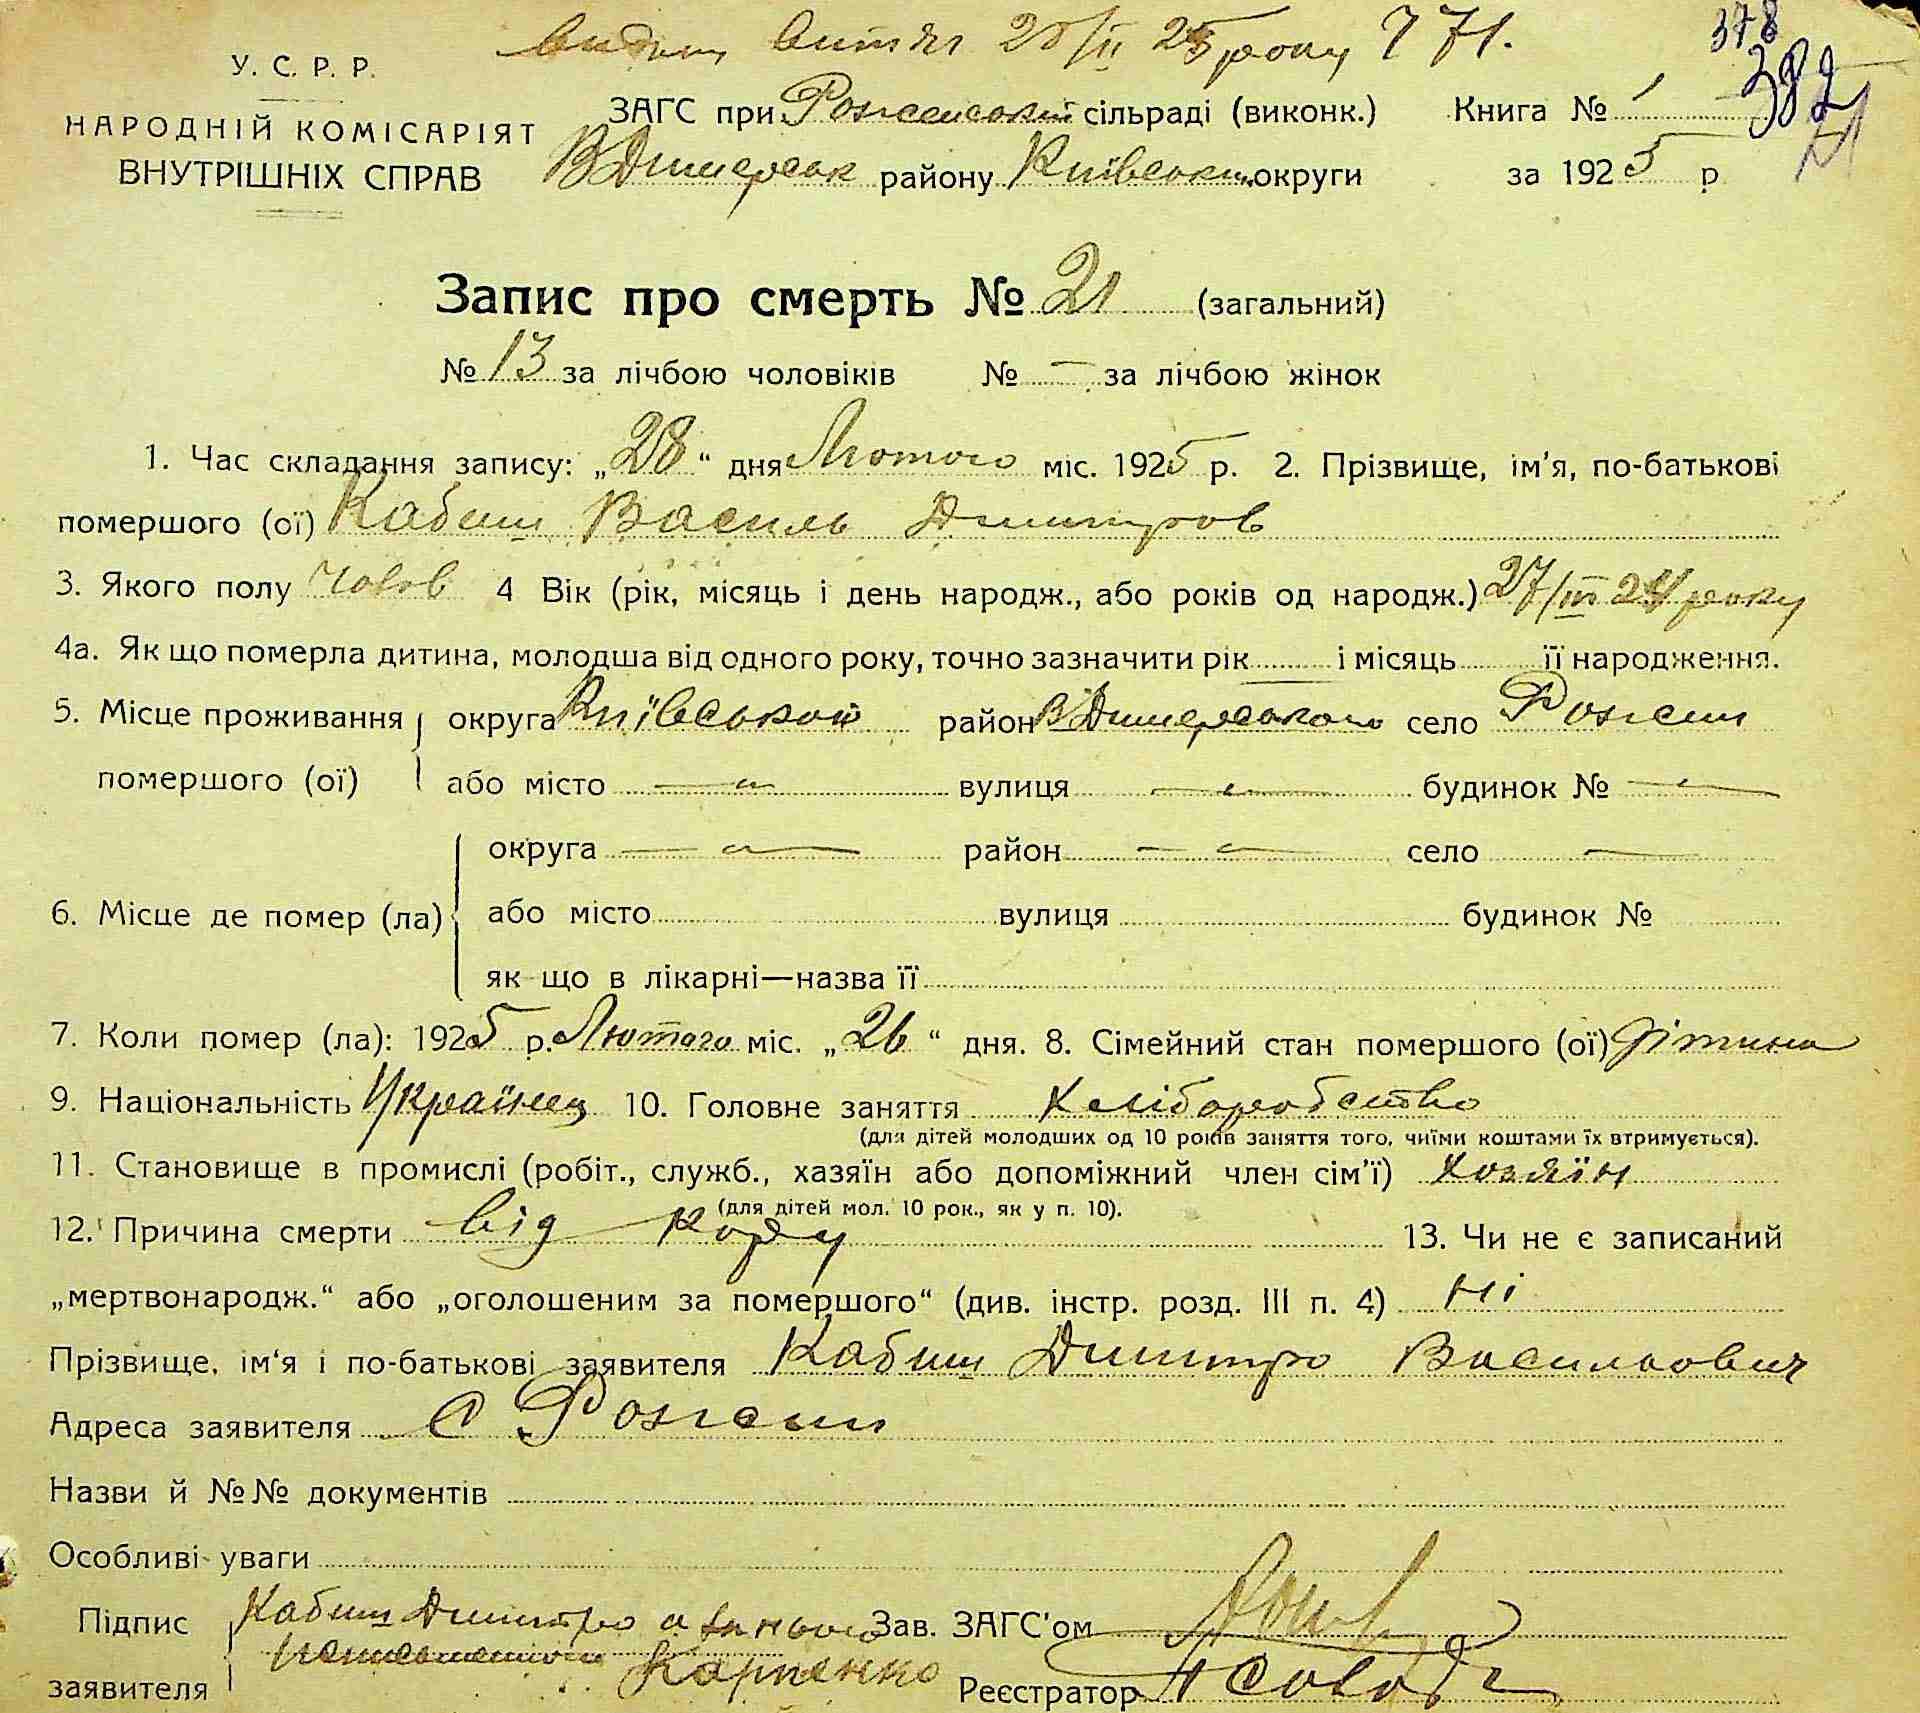 28/II 25 року 71.
378
382
У. С. Р. Р.
НАРОДНІЙ КОМІСАРІЯТ
ВНУТРІШНІХ СПРАВ
ЗАГС при Роженській сільраді (виконк.) Книга № 1
В Димерськ району Київськ округи за 1925 р
Запис про смерть № 21 (загальний)
№ 13 за лічбою чоловіків № — за лічбою жінок
1. Час складання запису: „28“ дня Лютого міс. 1925 р. 2. Прізвище, ім'я, по-батькові
помершого (ої) Кабиш Василь Дмитров
3. Якого полу Чолов 4 Вік (рік, місяць і день народж., або років од народж.) 27/III 24 року
4а. Як що померла дитина, молодша від одного року, точно зазначити рік і місяць її народження.
5. Місце проживання округа Київської район В Димерського село Рожен
помершого (ої) або місто — „ — вулиця — „ — будинок № — „ —
округа — „ — район — „ — село —
6. Місце де помер (ла) або місто вулиця будинок №
як що в лікарні—назва її
7. Коли помер (ла): 1925 р. Лютого міс. „26“ дня. 8. Сімейний стан помершого (ої) дітина
9. Національність Українец 10. Головне заняття Хліборобство
(для дітей молодших од 10 років заняття того, чиїми коштами їх втримується).
11. Становище в промислі (робіт., служб., хазяїн або допоміжний член сім'ї) Хозяїн
(для дітей мол. 10 рок., як у п. 10).
12. Причина смерти від кору 13. Чи не є записаний
„мертвонародж.“ або „оголошеним за помершого“ (див. інстр. розд. III п. 4) ні
Прізвище, ім'я і по-батькові заявителя Кабиш Дмитро Васильович
Адреса заявителя С Рожен
Назви й №№ документів
Особливі уваги
Підпис Кабиш Дмитро а за нього Зав. ЗАГС'ом
заявителя Карпенко Реєстратор